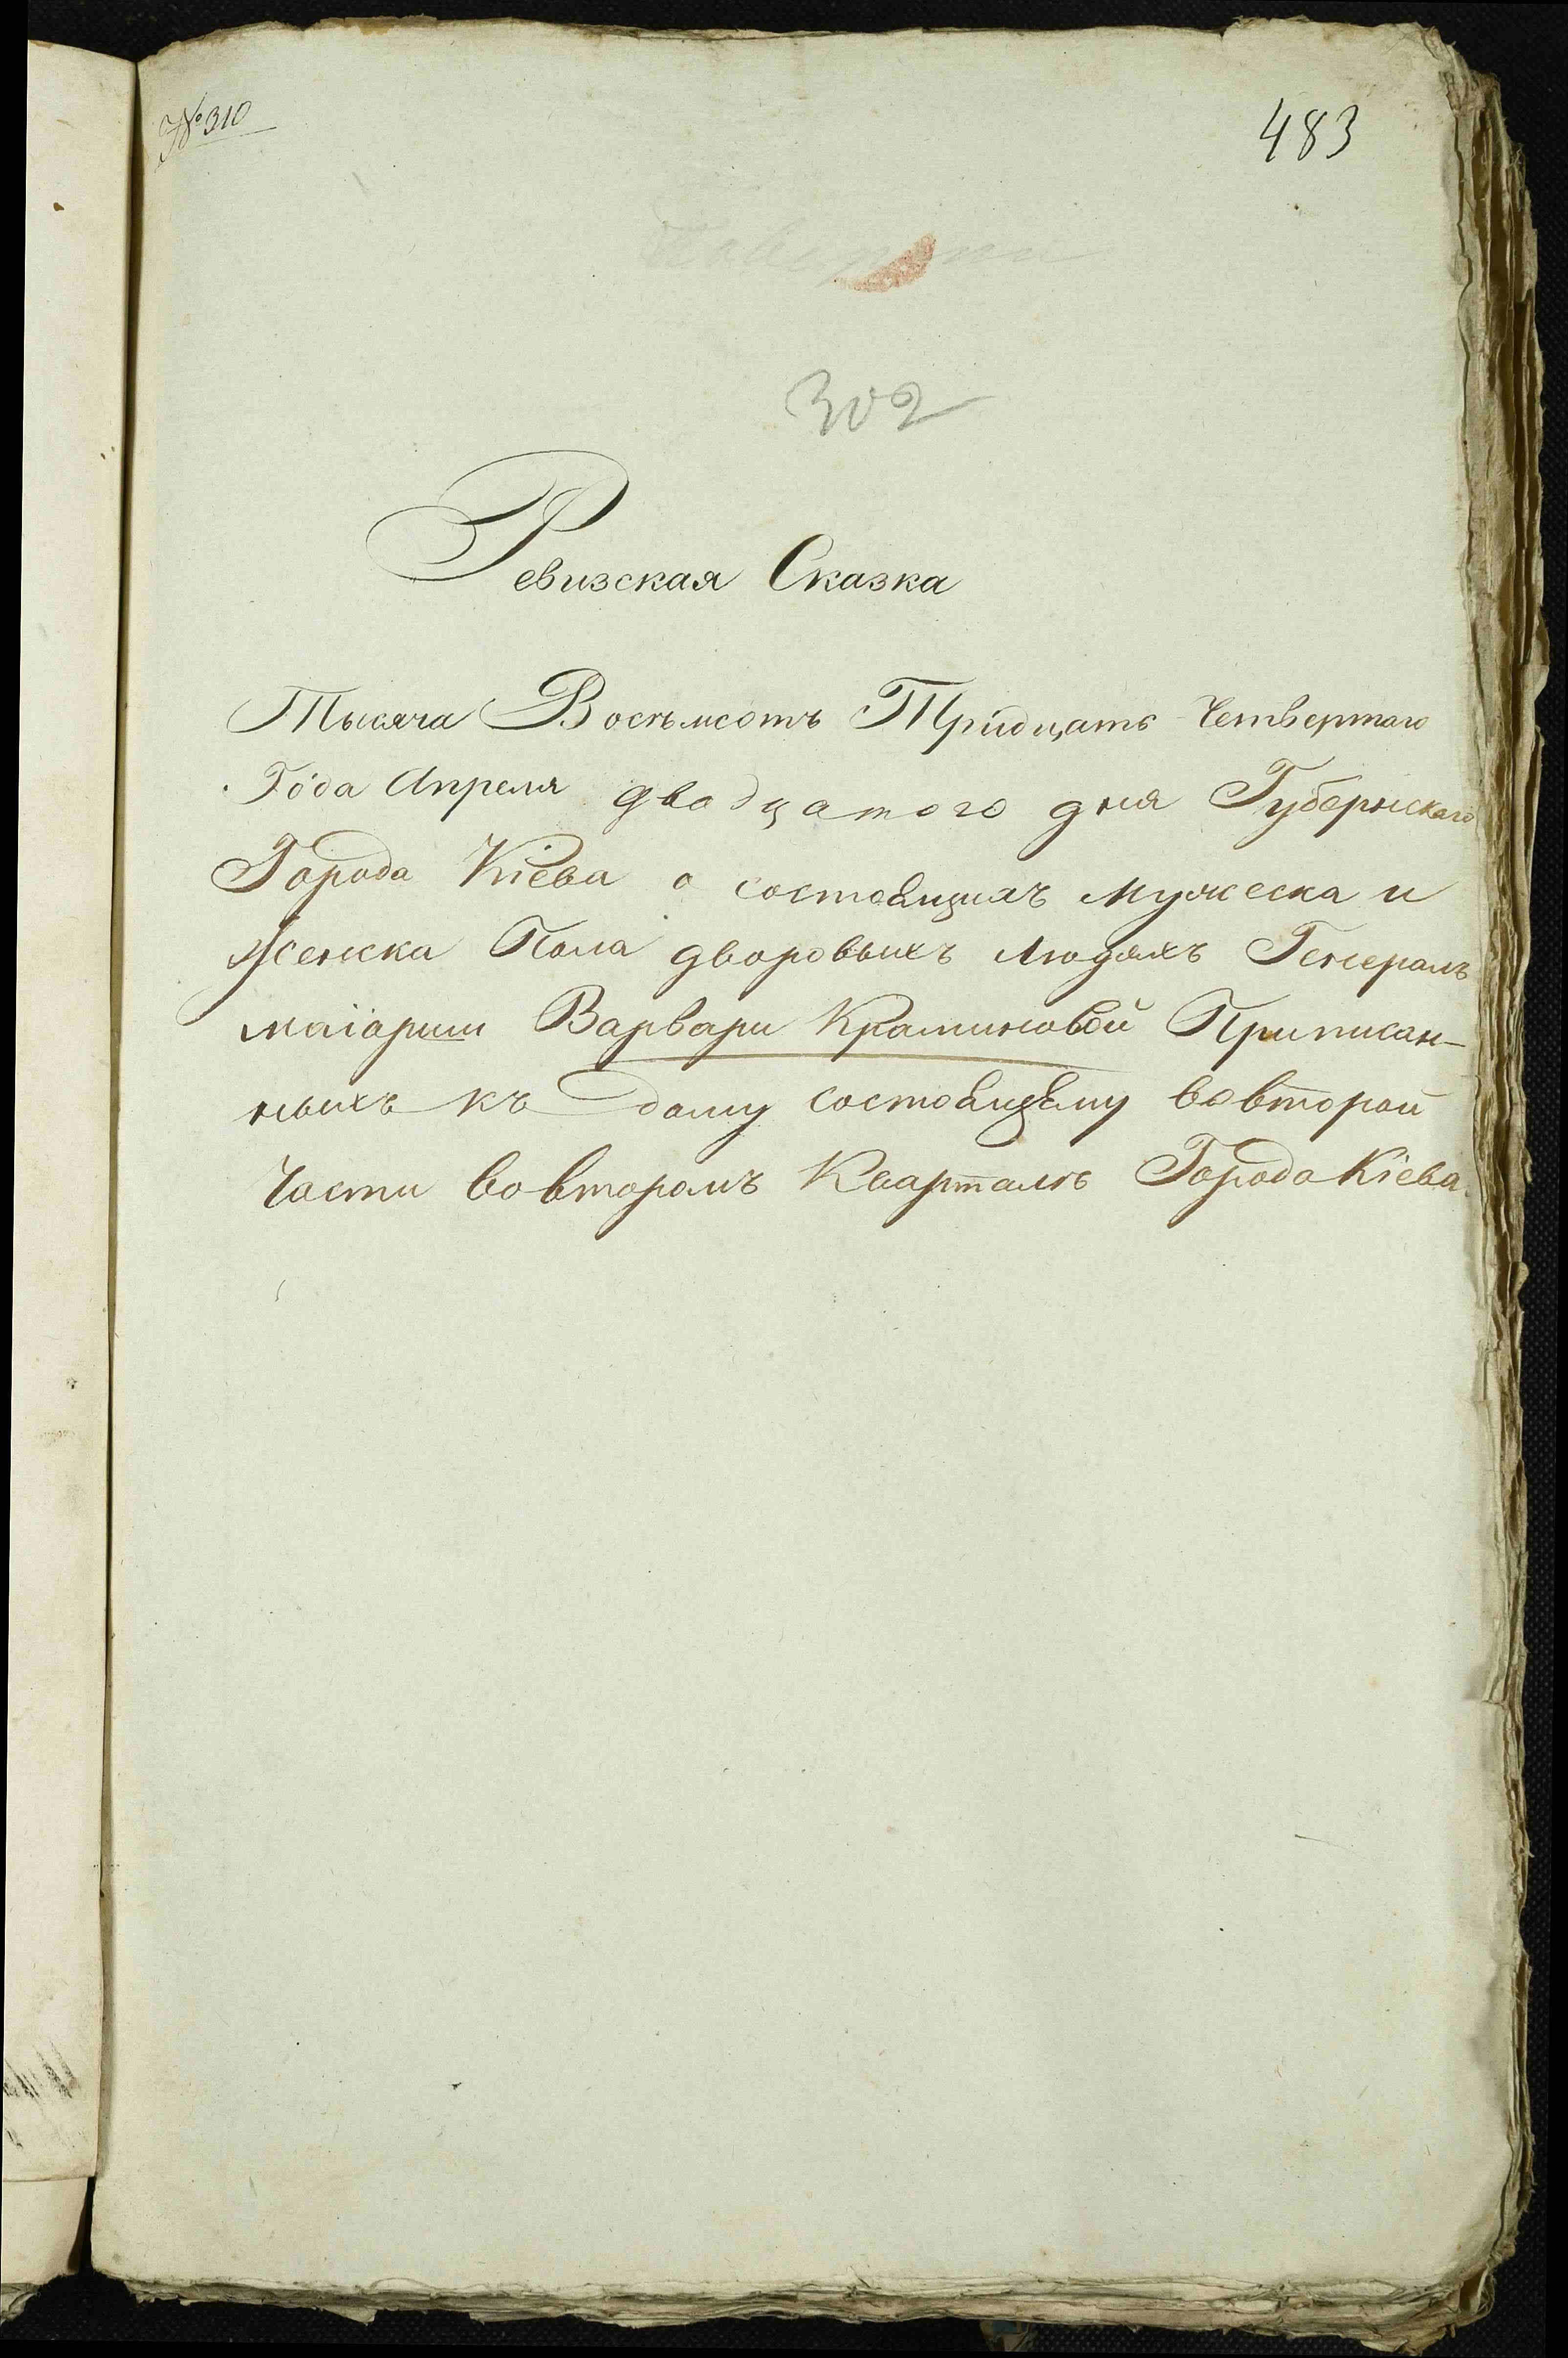 № 310
483
302
Ревизская Сказка
Тысяча Восъмсотъ Тридцать Четвертаго
Года Апреля двадцатого дня Губернскаго
Города Кіева о состоящихъ мужеска и
Женска Пола дворовыхъ людяхъ Генералъ
маіорши Варвари Краминовой Приписан-
ныхъ къ дому состоящему вовторой
Части вовторомъ Кварталѣ Города Кіева.